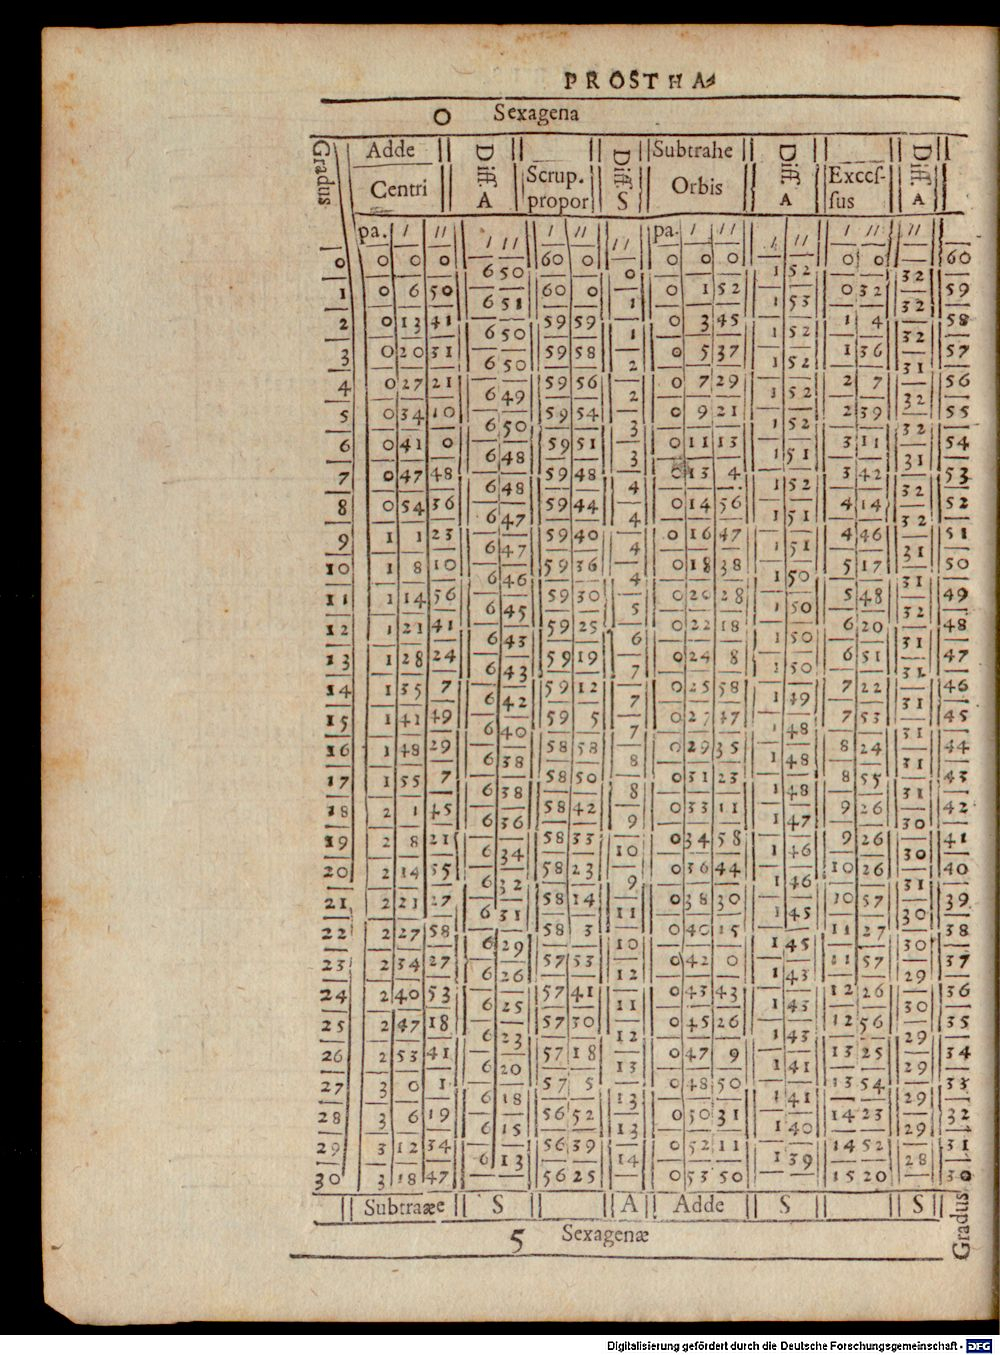 PROSTHA⸗
0 Sexagena
Gradus Adde Centri Diff. A Scrup. propor Diff. S Subtrahe Orbis Diff. A Excessus Diff. A
pa. ′ ″ ′ ″ ′ ″ ″ pa. ′ ″ ′ ″ ′ ″ ″
0 0 0 0 6 50 60 0 0 0 0 0 1 52 0 0 32 60
1 0 6 50 6 51 60 0 1 0 1 52 1 53 0 32 32 59
2 0 13 41 6 50 59 59 1 0 3 45 1 52 1 4 32 58
3 0 20 31 6 50 59 58 2 0 5 37 1 52 1 36 31 57
4 0 27 21 6 49 59 56 2 0 7 29 1 52 2 7 32 56
5 0 34 10 6 50 59 54 3 0 9 21 1 52 2 39 32 55
6 0 41 0 6 48 59 51 3 0 11 13 1 51 3 11 31 54
7 0 47 48 6 48 59 48 4 0 13 4 1 52 3 42 32 53
8 0 54 36 6 47 59 44 4 0 14 56 1 51 4 14 32 52
9 1 1 23 6 47 59 40 4 0 16 47 1 51 4 46 31 51
10 1 8 10 6 46 59 36 4 0 18 38 1 50 5 17 31 50
11 1 14 56 6 45 59 30 5 0 20 28 1 50 5 48 32 49
12 1 21 41 6 43 59 25 6 0 22 18 1 50 6 20 31 48
13 1 28 24 6 43 59 19 7 0 24 8 1 50 6 51 31 47
14 1 35 7 6 42 59 12 7 0 25 58 1 49 7 22 31 46
15 1 41 49 6 40 59 5 7 0 27 47 1 48 7 53 31 45
16 1 48 29 6 38 58 58 8 0 29 35 1 48 8 24 31 44
17 1 55 7 6 38 58 50 8 0 31 23 1 48 8 55 31 43
18 2 1 45 6 36 58 42 9 0 33 11 1 47 9 26 30 42
19 2 8 21 6 34 58 33 10 0 34 58 1 46 9 26 30 41
20 2 14 55 6 32 58 23 9 0 36 44 1 46 10 26 31 40
21 2 21 27 6 31 58 14 11 0 38 30 1 45 10 57 30 39
22 2 27 58 6 29 58 3 10 0 40 15 1 45 11 27 30 38
23 2 34 27 6 26 57 53 12 0 42 0 1 43 11 57 29 37
24 2 40 53 6 25 57 41 11 0 43 43 1 43 12 26 30 36
25 2 47 18 6 23 57 30 12 0 45 26 1 43 12 56 29 35
26 2 53 41 6 20 57 18 13 0 47 9 1 41 13 25 29 34
27 3 0 1 6 18 57 5 13 0 48 50 1 41 13 54 29 33
28 3 6 19 6 15 56 52 13 0 50 31 1 40 14 23 29 32
29 3 12 34 6 13 56 39 14 0 52 11 1 39 14 52 28 31
30 3 18 47 56 25 0 53 50 15 20 30
Subtraæe S A Adde S S Gradus
5 Sexagenæ
Digitalisierung gefördert durch die Deutsche Forschungsgemeinschaft - DFG